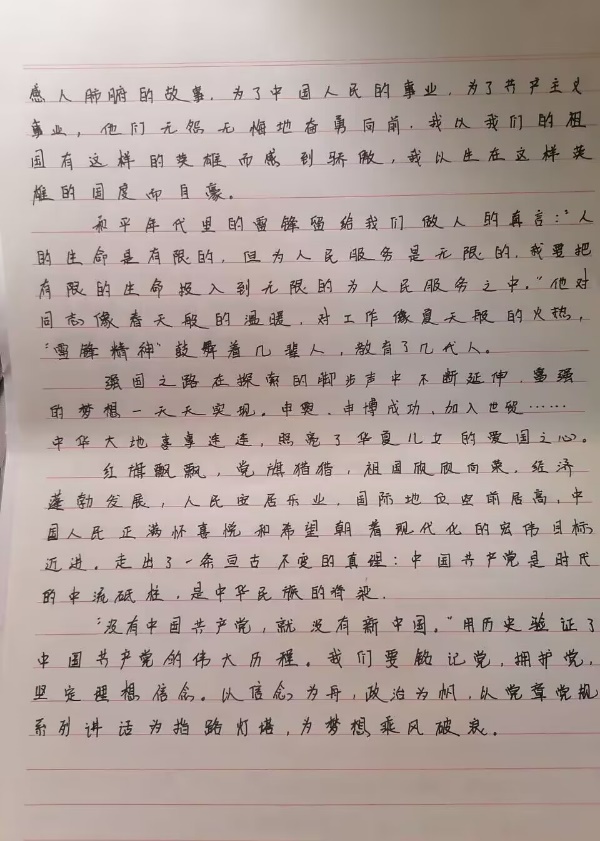 感人肺腑的故事.为了中国人民的事业,为了共产主义
事业,他们无怨无悔地奋勇向前.我以我们的祖
国有这样的英雄而感到骄傲,我以生在这样英
雄的国度而自豪。
和平年代里的雷锋留给我们做人的真言:"人
的生命是有限的,但为人民服务是无限的.我要把
有限的生命投入到无限的为人民服务之中."他对
同志像春天般的温暖,对工作像夏天般的火热,
"雷锋精神"鼓舞着几辈人,教育了几代人。
强国之路在探索的脚步声中不断延伸,富强
的梦想一天天实现。申奥、申博成功、加入世贸……
中华大地喜事连连,照亮了华夏儿女的爱国之心。
红旗飘飘,党旗猎猎,祖国欣欣向荣,经济
蓬勃发展,人民安居乐业,国际地位空前居高,中
国人民正满怀喜悦和希望朝着现代化的宏伟目标
近进.走出了一条亘古不变的真理:中国共产党是时代
的中流砥柱,是中华民族的脊梁.
"没有中国共产党,就没有新中国。"用历史验证了
中国共产党的伟大历程。我们要铭记党,拥护党,
坚定理想信念。以信念为舟,政治为帆,以党章党规
系列讲话为指路灯塔,为梦想乘风破浪。